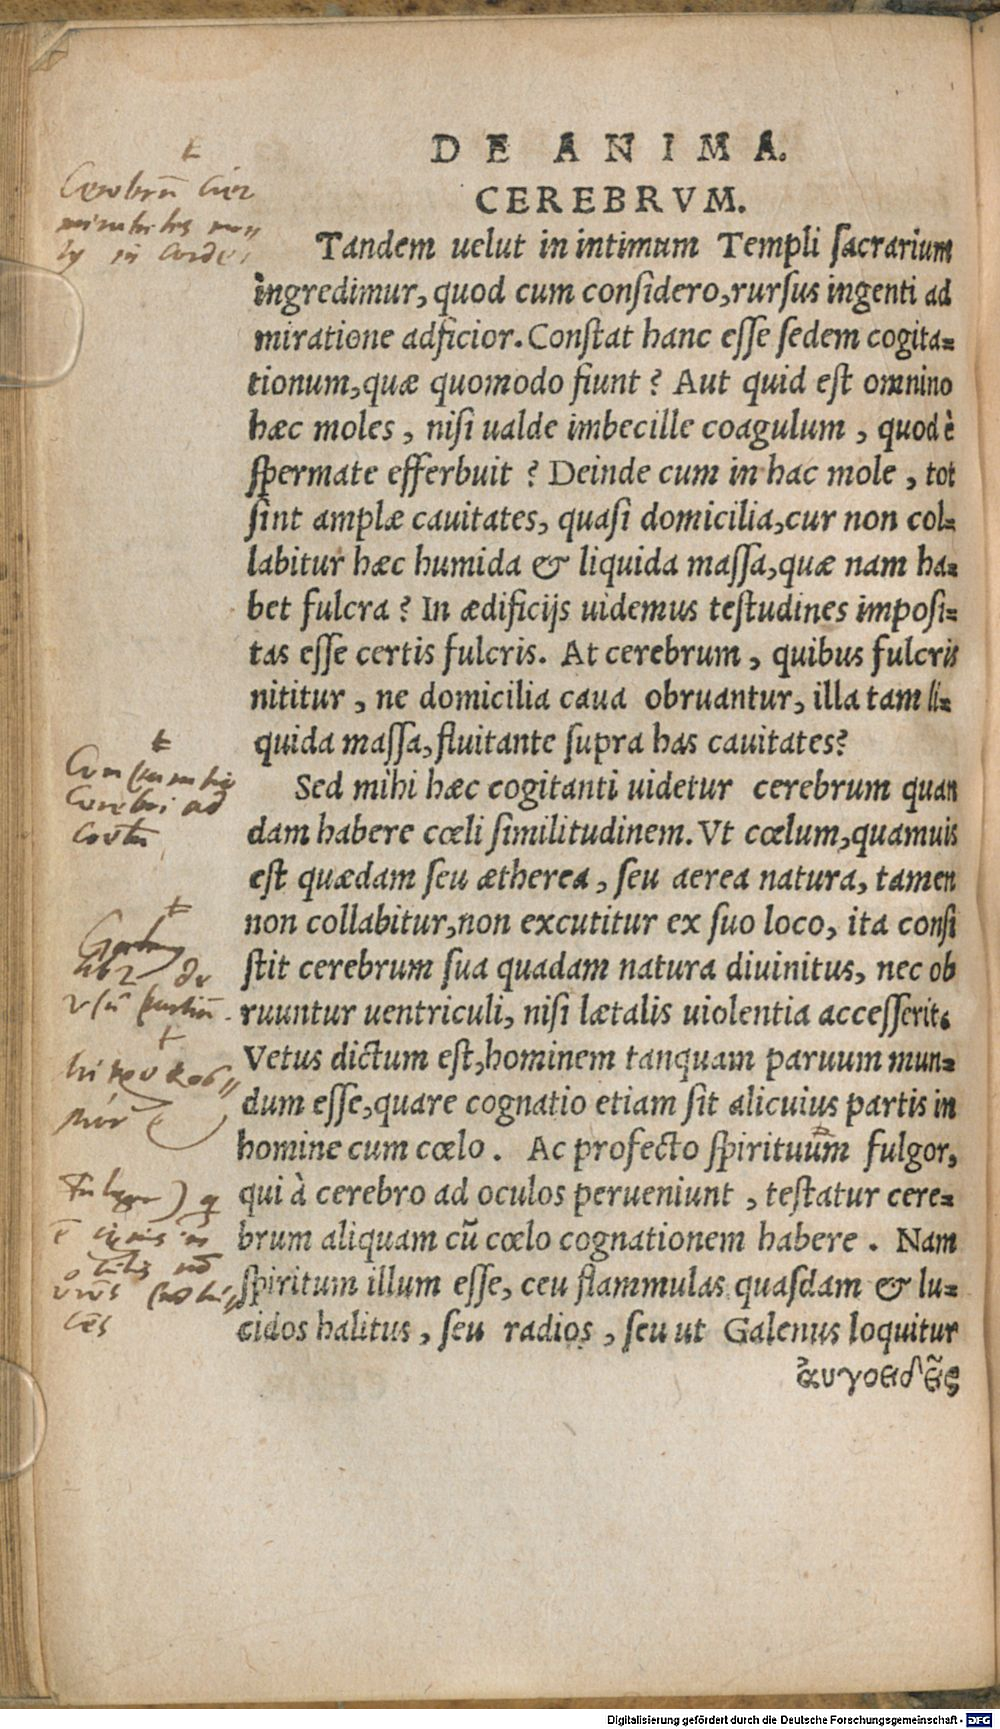 DE ANIMA.
CEREBRVM.
Tandem uelut in intimum Templi sacrarium
ingredimur, quod cum considero, rursus ingenti ad
miratione adficior. Constat hanc esse sedem cogita=
tionum, quæ quomodo fiunt? Aut quid est omnino
hæc moles, nisi ualde imbecille coagulum, quod è
spermate efferbuit? Deinde cum in hac mole, tot
sint amplæ cauitates, quasi domicilia, cur non col=
labitur hæc humida & liquida massa, quæ nam ha=
bet fulcra? In ædificijs uidemus testudines imposi=
tas esse certis fulcris. At cerebrum, quibus fulcris
nititur, ne domicilia caua obruantur, illa tam li=
quida massa, fluitante supra has cauitates?
Sed mihi hæc cogitanti uidetur cerebrum quan
dam habere cœli similitudinem. Vt cœlum, quamuis
est quædam seu ætherea, seu aerea natura, tamen
non collabitur, non excutitur ex suo loco, ita consi
stit cerebrum sua quadam natura diuinitus, nec ob
ruuntur uentriculi, nisi lætalis uiolentia accesserit.
Vetus dictum est, hominem tanquam paruum mun=
dum esse, quare cognatio etiam sit alicuius partis in
homine cum cœlo. Ac profecto spirituum fulgor,
qui à cerebro ad oculos perueniunt, testatur cere=
brum aliquam cũ cœlo cognationem habere. Nam
spiritum illum esse, ceu flammulas quasdam & lu=
cidos halitus, seu radios, seu ut Galenus loquitur
ἀυγοειδεῖς
Cerebri ad
lib 2 de
Digitalisierung gefördert durch die Deutsche Forschungsgemeinschaft - DFG